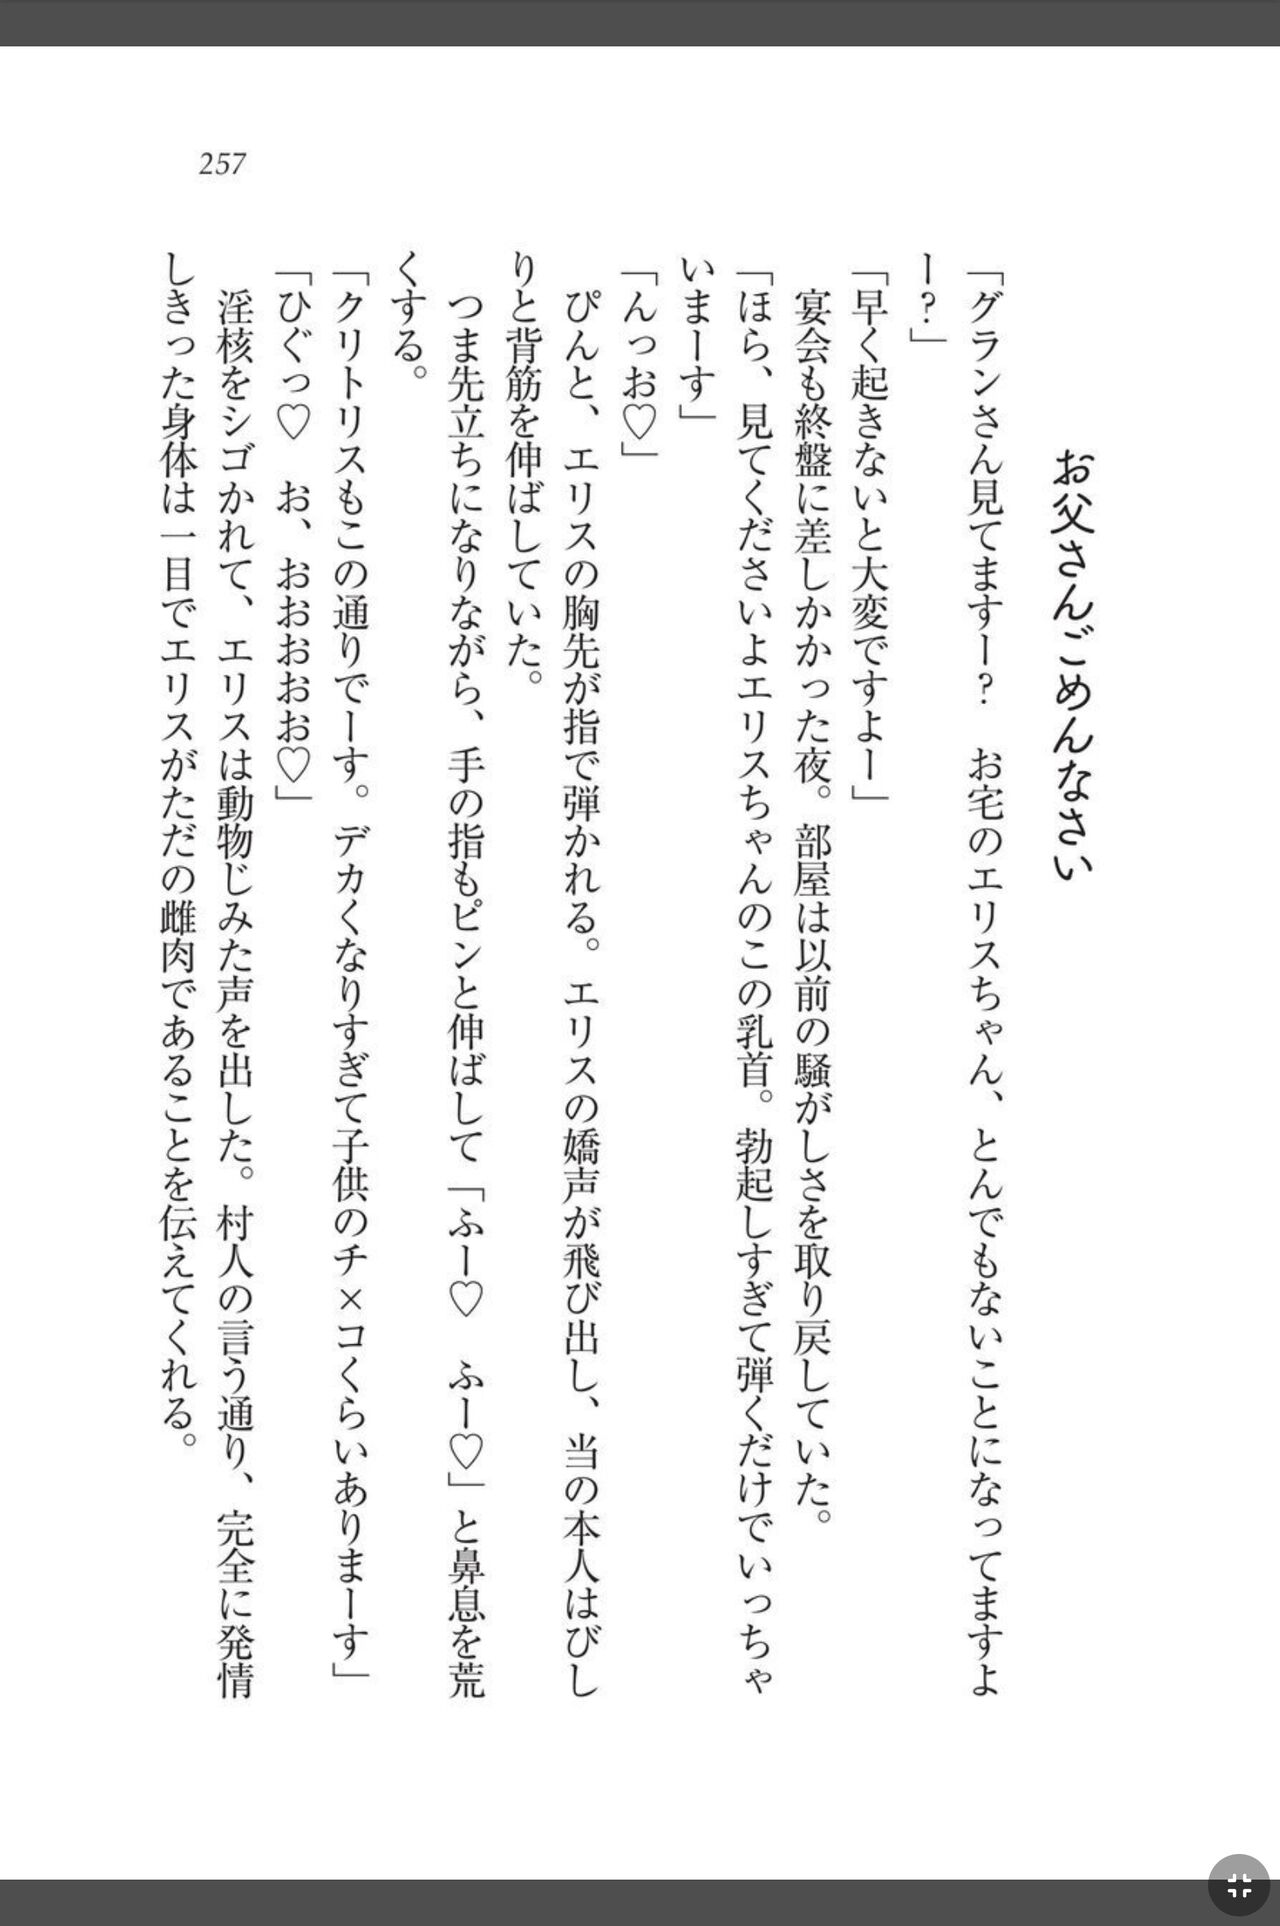 257
お父さんごめんなさい
「グランさん見てますー？　お宅のエリスちゃん、とんでもないことになってますよ
ー？」
「早く起きないと大変ですよー」
宴会も終盤に差しかかった夜。部屋は以前の騒がしさを取り戻していた。
「ほら、見てくださいよエリスちゃんのこの乳首。勃起しすぎて弾くだけでいっちゃ
いまーす」
「んっお♡」
ぴんと、エリスの胸先が指で弾かれる。エリスの嬌声が飛び出し、当の本人はびし
りと背筋を伸ばしていた。
つま先立ちになりながら、手の指もピンと伸ばして「ふー♡　ふー♡」と鼻息を荒
くする。
「クリトリスもこの通りでーす。デカくなりすぎて子供のチ×コくらいありまーす」
「ひぐっ♡　お、おおおおお♡」
淫核をシゴかれて、エリスは動物じみた声を出した。村人の言う通り、完全に発情
しきった身体は一目でエリスがただの雌肉であることを伝えてくれる。